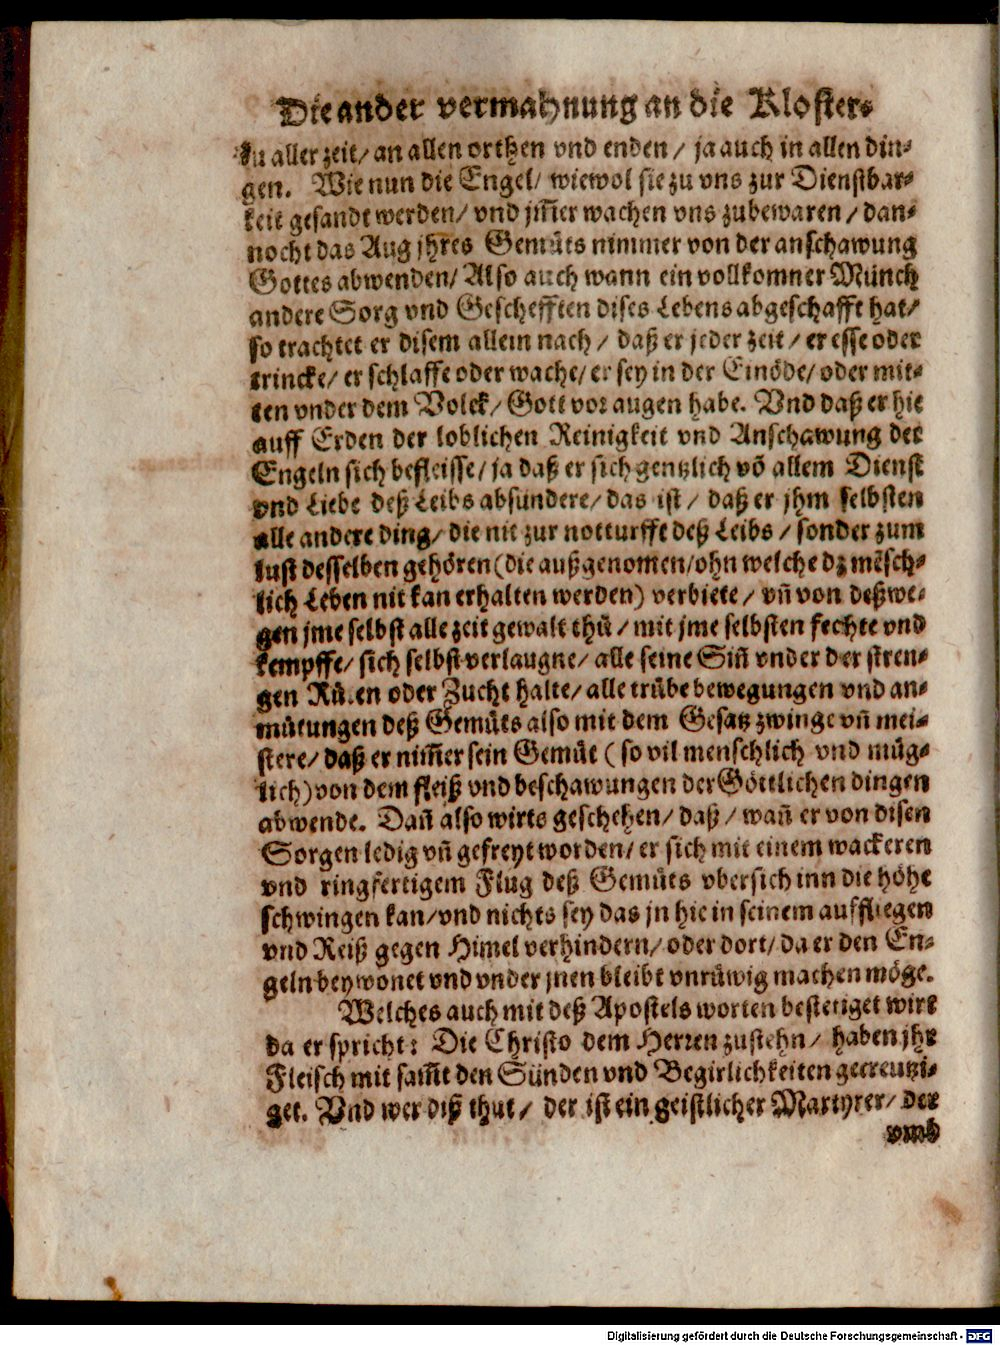 Die ander vermahnung an die Kloster-
zu aller zeit/ an allen orthen vnd enden/ ja auch in allen din-
gen. Wie nun die Engel/ wiewol sie zu vns zur Dienstbar-
keit gesandt werden/ vnd jm̃er wachen vns zubewaren/ dan-
nocht das Aug jhres Gemůts nimmer von der anschawung
Gottes abwenden/ Also auch wann ein vollkomner Münch
andere Sorg vnd Geschefften dises Lebens abgeschafft hat/
so trachtet er disem allein nach/ daß er jeder zeit/ er esse oder
trincke/ er schlaffe oder wache/ er sey in der Einöde/ oder mit-
ten vnder dem Volck/ Gott vor augen habe. Vnd daß er hie
auff Erden der loblichen Reinigkeit vnd Anschawung der
Engeln sich befleisse/ ja daß er sich gentzlich võ allem Dienst
vnd Liebe deß Leibs absundere/ das ist/ daß er jhm selbsten
alle andere ding/ die nit zur notturfft deß Leibs/ sonder zum
lust desselben gehören (die außgenomen/ ohn welche dz mẽsch-
lich Leben nit kan erhalten werden) verbiete/ vñ von deßwe-
gen jme selbst alle zeit gewalt thů/ mit jme selbsten fechte vnd
kempffe/ sich selbst verlaugne/ alle seine Siñ vnder der stren-
gen oder Zucht halte/ alle trübe bewegungen vnd an-
můtungen deß Gemůts also mit dem Gesatz zwinge vñ mei-
stere/ daß er nim̃er sein Gemůt (so vil menschlich vnd müg-
lich) von dem fleiß vnd beschawungen der Göttlichen dingen
abwende. Dañ also wirts geschehen/ daß/ wañ er von disen
Sorgen ledig vñ gefreyt worden/ er sich mit einem wackeren
vnd ringfertigem Flug deß Gemůts vbersich inn die höhe
schwingen kan/ vnd nichts sey das jn hie in seinem auffliegen
vnd Reiß gegen Himel verhindern/ oder dort/ da er den En-
geln beywonet vnd vnder jnen bleibt vnrüwig machen möge.
Welches auch mit deß Apostels worten bestetiget wirt
da er spricht: Die Christo dem Herren zustehn/ haben jhr
Fleisch mit sam̃t den Sünden vnd Begirlichkeiten gecreutzi-
get. Vnd wer diß thut/ der ist ein geistlicher Martyrer/ der
vmb
Digitalisierung gefördert durch die Deutsche Forschungsgemeinschaft - DFG